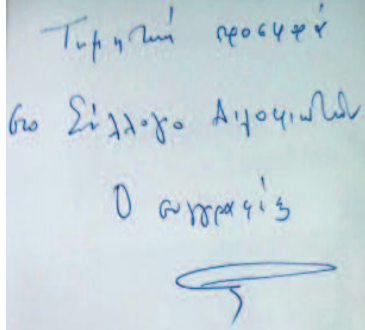 Τιμητική προσφορά
στο Σύλλογο
Ο συγγραφέας